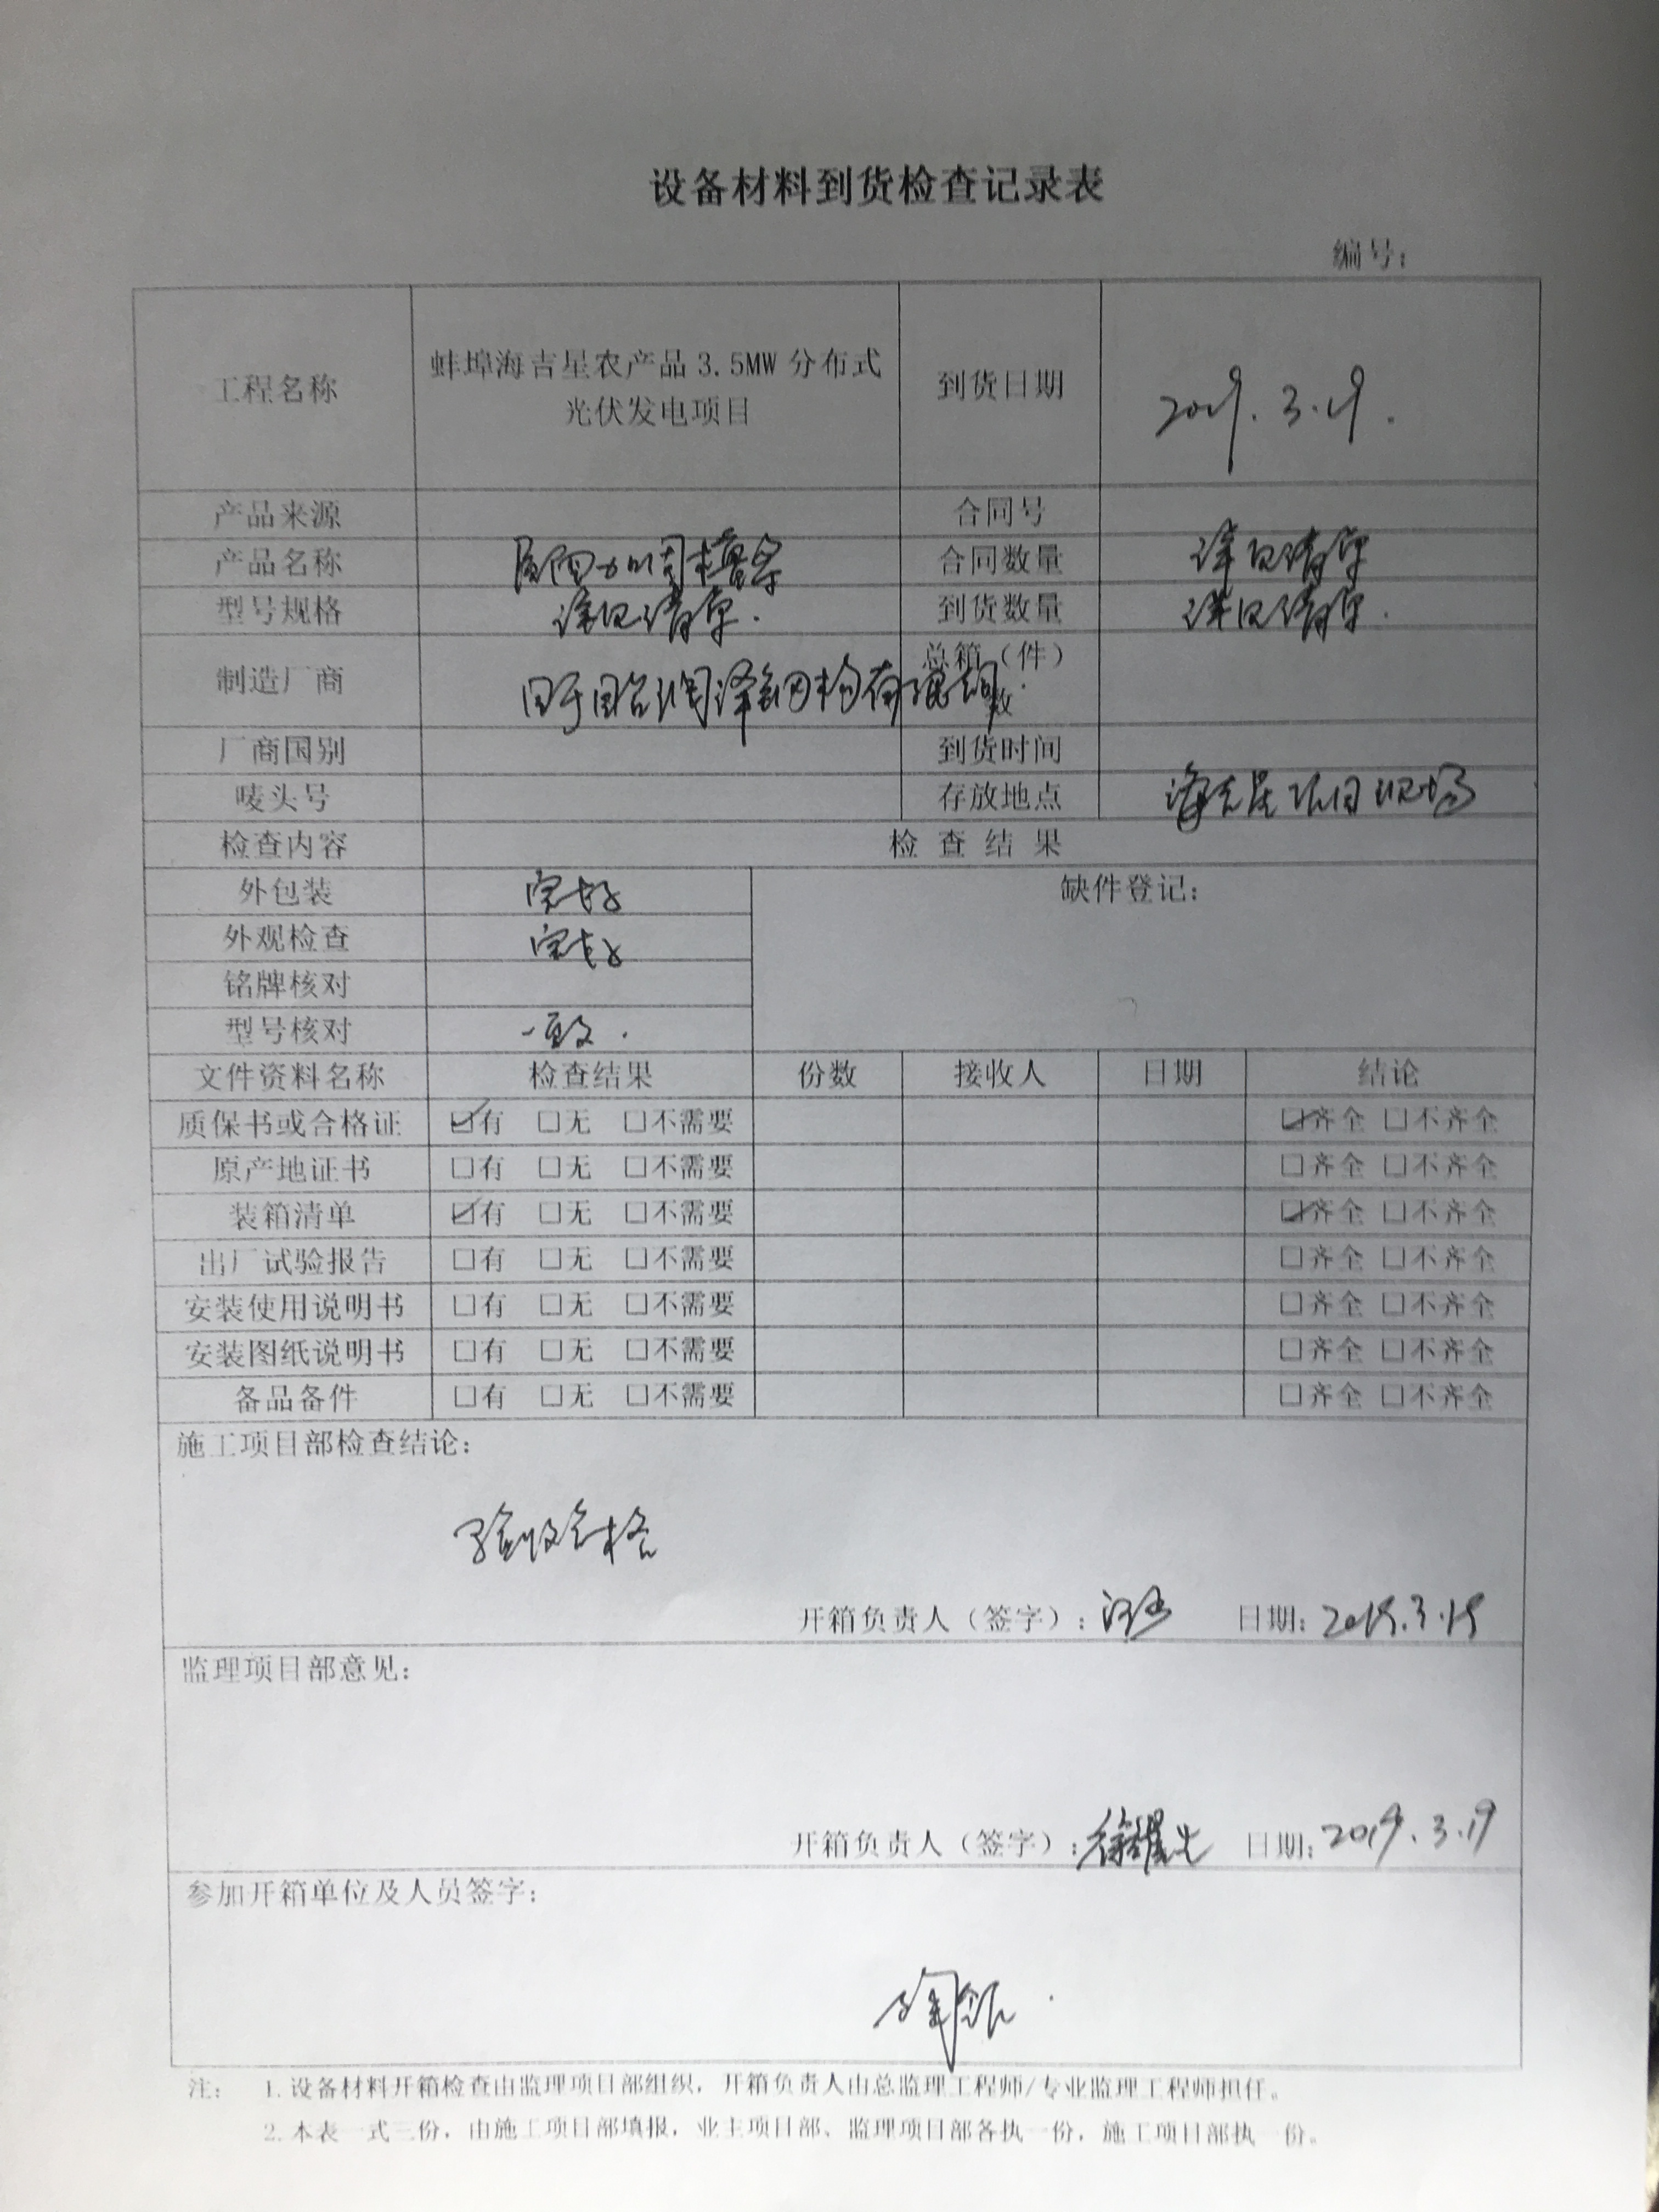 设备材料到货检查记录表
编号:
工程名称 蚌埠海吉星农产品3.5MW分布式光伏发电项目 到货日期 2019.3.19.
产品来源 合同号
产品名称 屋面加固檩条 合同数量 详见清单
型号规格 详见清单. 到货数量 详见清单.
制造厂商 润泽钢构有限 总箱(件)数
厂商国别 到货时间
唛头号 存放地点 海吉星项目现场
检查内容 检查结果
外包装 完好 缺件登记:
外观检查 完好
铭牌核对
型号核对 一致.
文件资料名称 检查结果 份数 接收人 日期 结论
质保书或合格证 ☑有 □无 □不需要 ☑齐全 □不齐全
原产地证书 □有 □无 □不需要 □齐全 □不齐全
装箱清单 ☑有 □无 □不需要 ☑齐全 □不齐全
出厂试验报告 □有 □无 □不需要 □齐全 □不齐全
安装使用说明书 □有 □无 □不需要 □齐全 □不齐全
安装图纸说明书 □有 □无 □不需要 □齐全 □不齐全
备品备件 □有 □无 □不需要 □齐全 □不齐全
施工项目部检查结论:
验收合格
开箱负责人(签字): 日期: 2019.3.19
监理项目部意见:
开箱负责人(签字): 日期: 2019.3.19
参加开箱单位及人员签字:
注: 1.设备材料开箱检查由监理项目部组织,开箱负责人由总监理工程师/专业监理工程师担任。
2.本表一式三份,由施工项目部填报,业主项目部、监理项目部各执一份,施工项目部执一份。